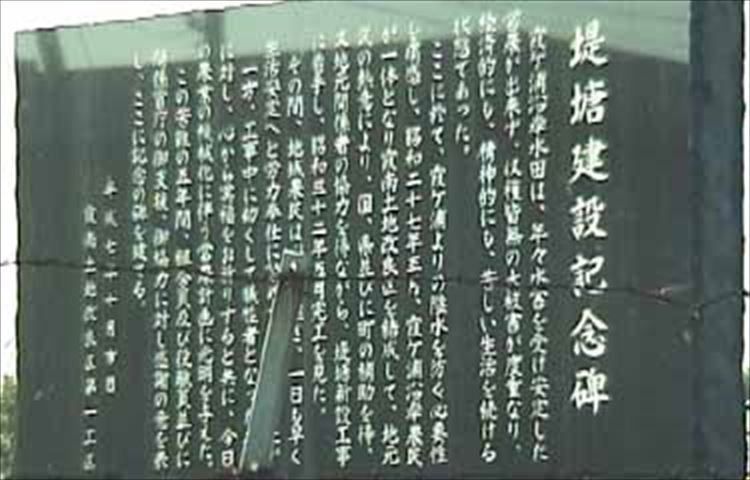 堤塘建設記念碑
霞ケ浦沿岸水田は、年々水害を受け安定した
営農が出来ず、収穫皆無の大被害が度重なり、
経済的にも、精神的にも、苦しい生活を続ける
状態であった。
ここに於て、霞ケ浦よりの浸水を防ぐ必要性
を痛感し、昭和二十七年五月、霞ケ浦沿岸農民
が一体となり霞南土地改良区を結成して、地元
民の熱意により、国、県並びに町の補助を得、
又地元関係者の協力を得ながら、堤塘新設工事
に着手し、昭和三十二年五月完工を見た。
その間、地域農民は、一日も早く
生活安定へと労力奉仕に
一方、工事中に於て犠牲者となっ
に対し、心から冥福をお祈りすると共に、今日
の農業の機械化に伴う営農計画に光明を与えた。
この苦難の五年間、組合員及び役職員並びに
関係官庁の御支援、御協力に対し感謝の意を表
し、ここに記念の碑を建てる。
平成七年十月吉日
霞南土地改良区第一工区